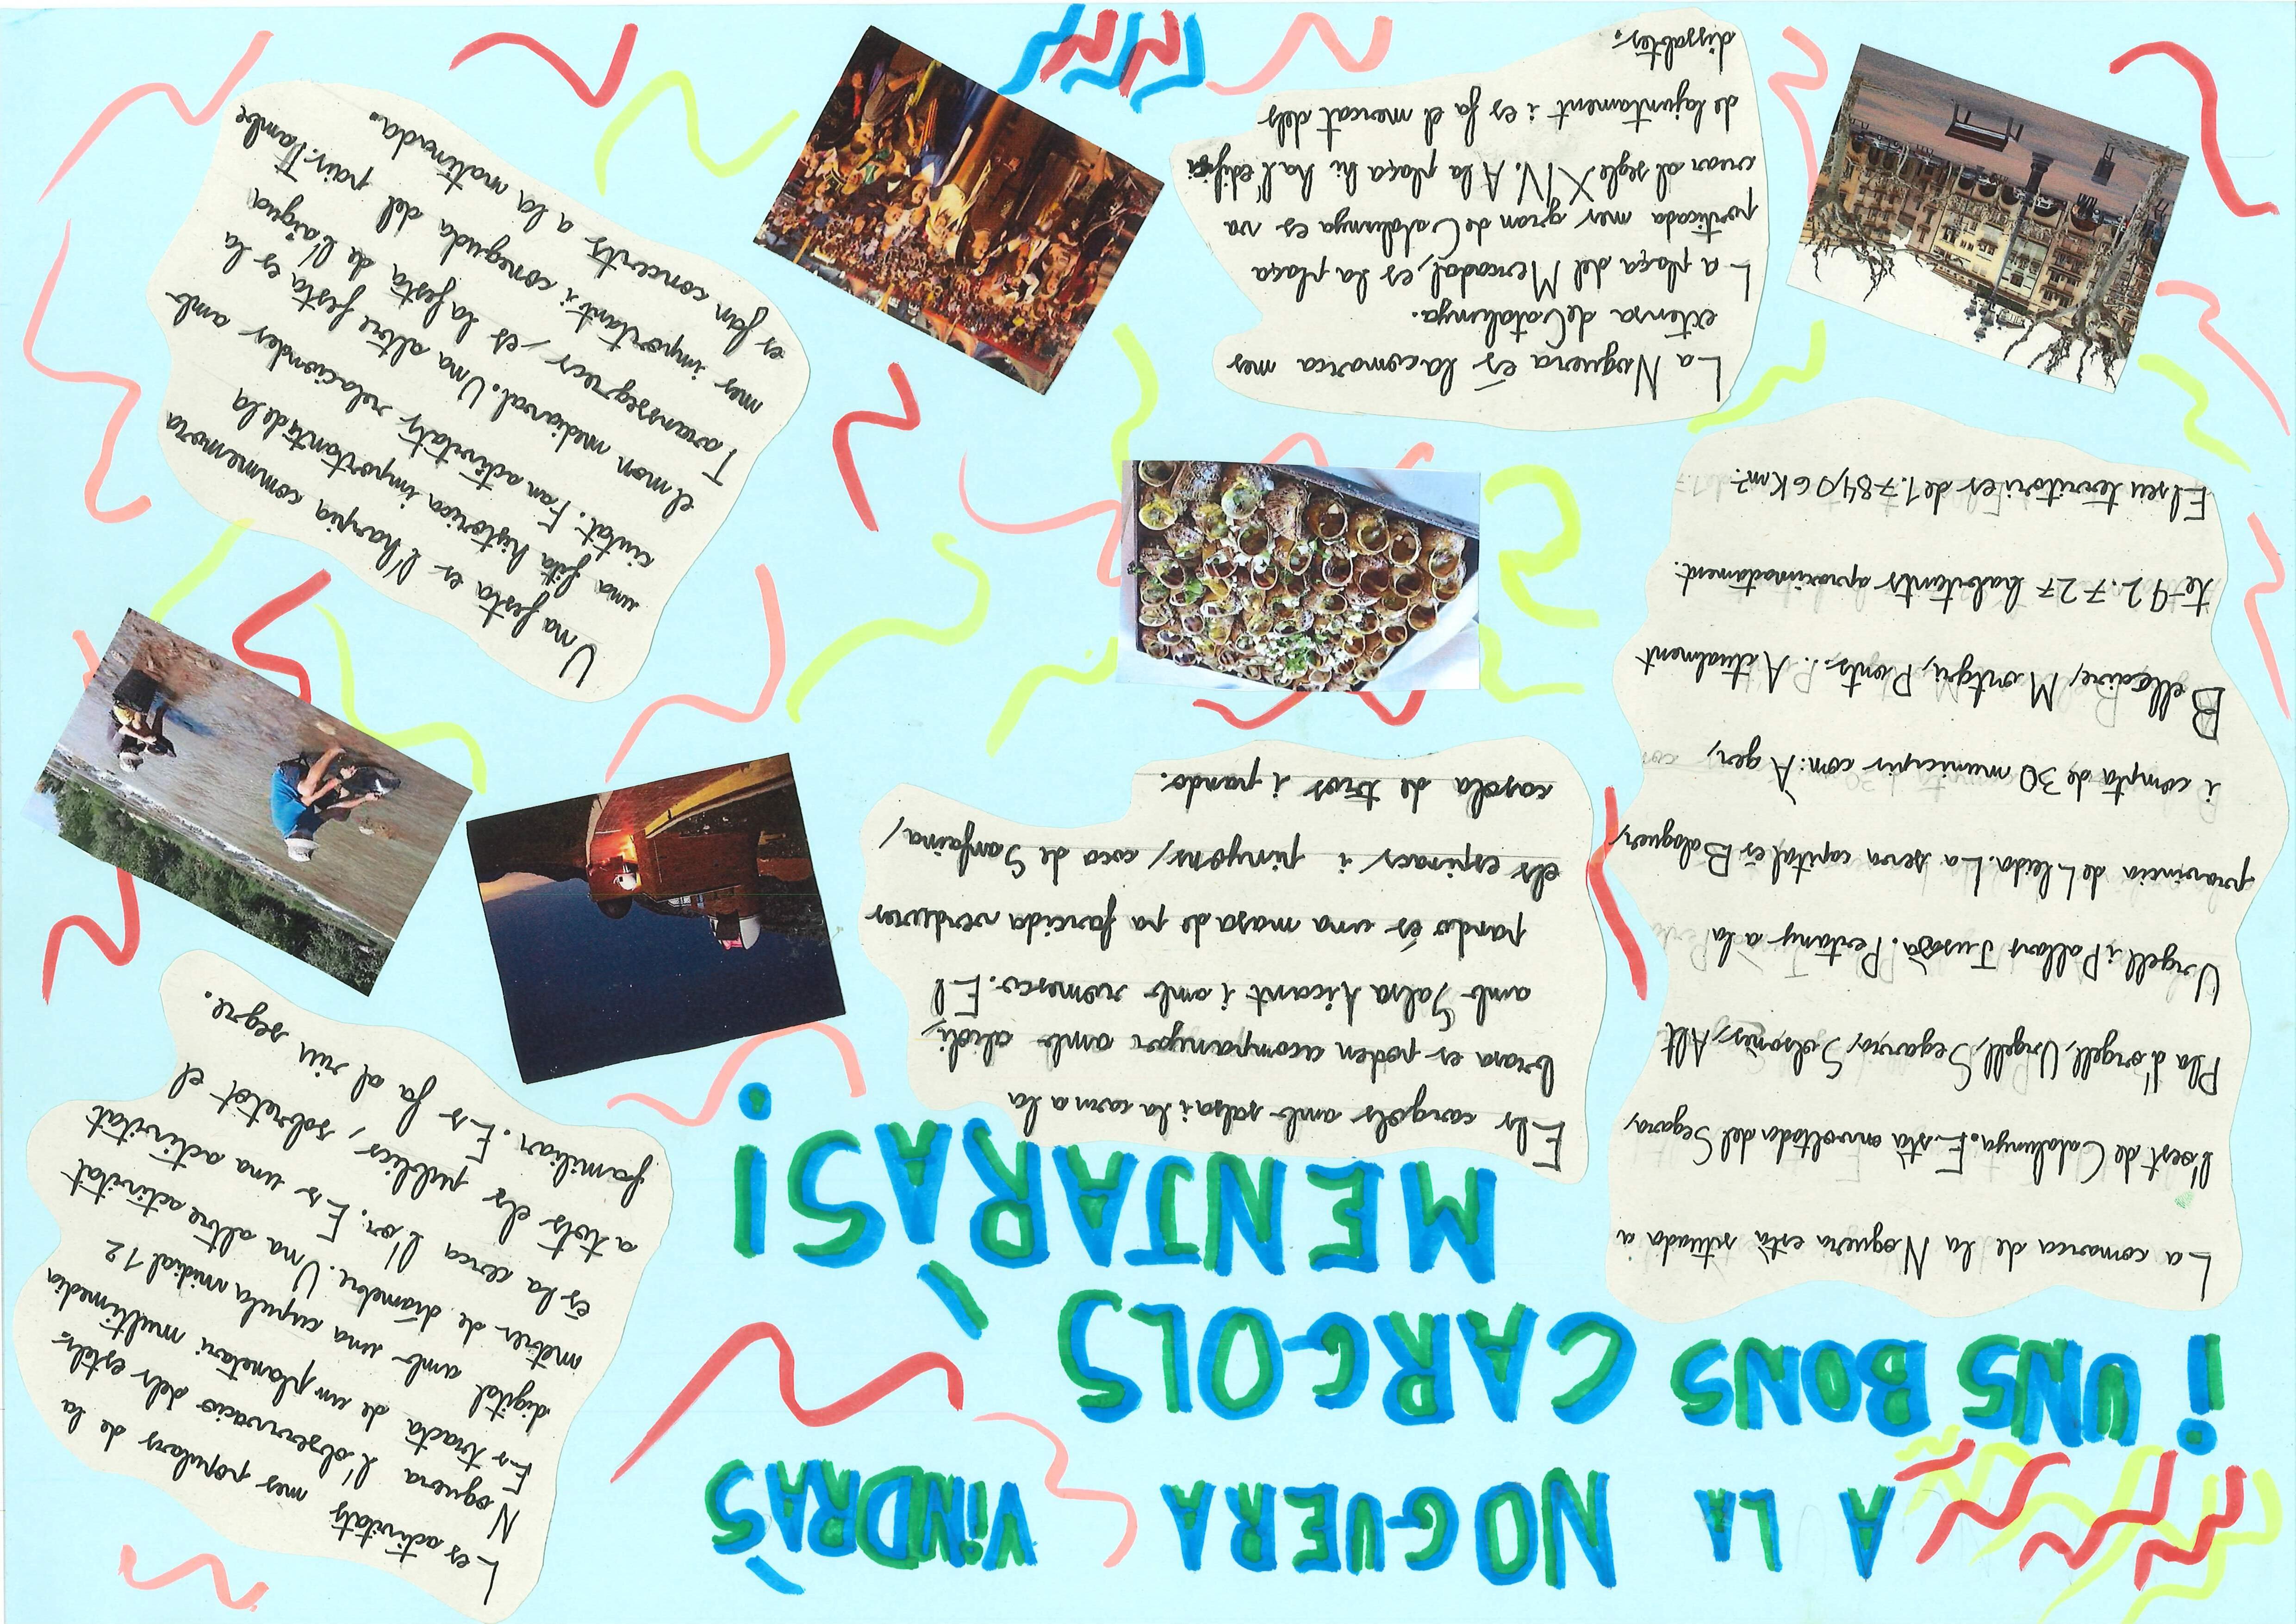 A LA NOGUERA VINDRÀS
¡UNS BONS CARGOLS
MENJARÀS!
La comarca de la Noguera està situada a
l'oest de Catalunya. Està envoltada del Segarra,
Pla d'orgell, Urgell, Segarra, Solsonès, Alt
Urgell i Pallars Jussà. Pertany a la
província de Lleida. La seva capital és Balaguer,
i compta de 30 municipis con: Àger,
Bellcaire, Montgai, Ponts... Actualment
te 42.727 habitants aproximadament.
El seu territori es de 1.784,06 Km².
Els cargols amb salsa i la carn a la
brasa es poden acompanyar amb alioli,
amb Salsa Picant i amb romesco. El
pando és una masa de pa farcida verdures
els espinacs i pinyons, coca de Samfaina,
casola de tros i pando.
Les activitats mes populars de la
Noguera l'observacio dels estels
Es tracta de un planetari multimedia
digital amb una cupula midial 12
metres de diametre. Una altre activitat
és la cerca l'or. Es una activitat
a tots els publics, sobretot el
familiar. Es fa al riu segre.
La Noguera és la comarca mes
extensa de Catalunya.
La plaça del Mercadal, es la plaça
porticada mes gran de Catalunya es va
crear al segle XIV. A la plaça hi ha l'edifici
de lajuntament i es fa el mercat dels
dissabtes.
Una festa es l'harpia commemora
una fita historica important de la
ciutat. Fan activitats relaciondes amb
el mon medioval. Una altre festa es la
Transsegrecs, es la festa de l'aigua
mes important i coneguda del pais. També
es fan concerts a la matinada.